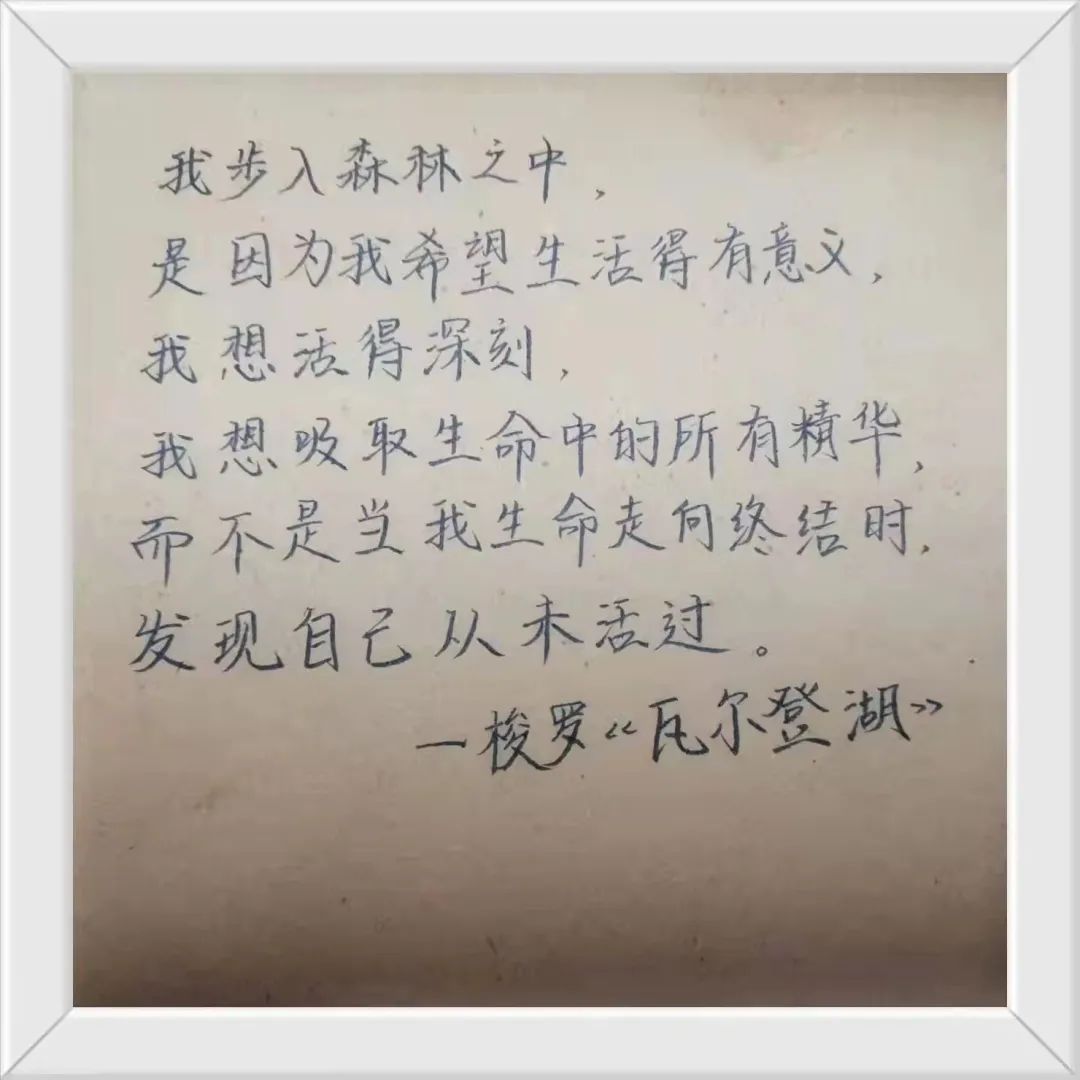 我步入森林之中,
是因为我希望生活得有意义,
我想活得深刻,
我想吸取生命中的所有精华,
而不是当我生命走向终结时,
发现自己从未活过。
一梭罗《瓦尔登湖》